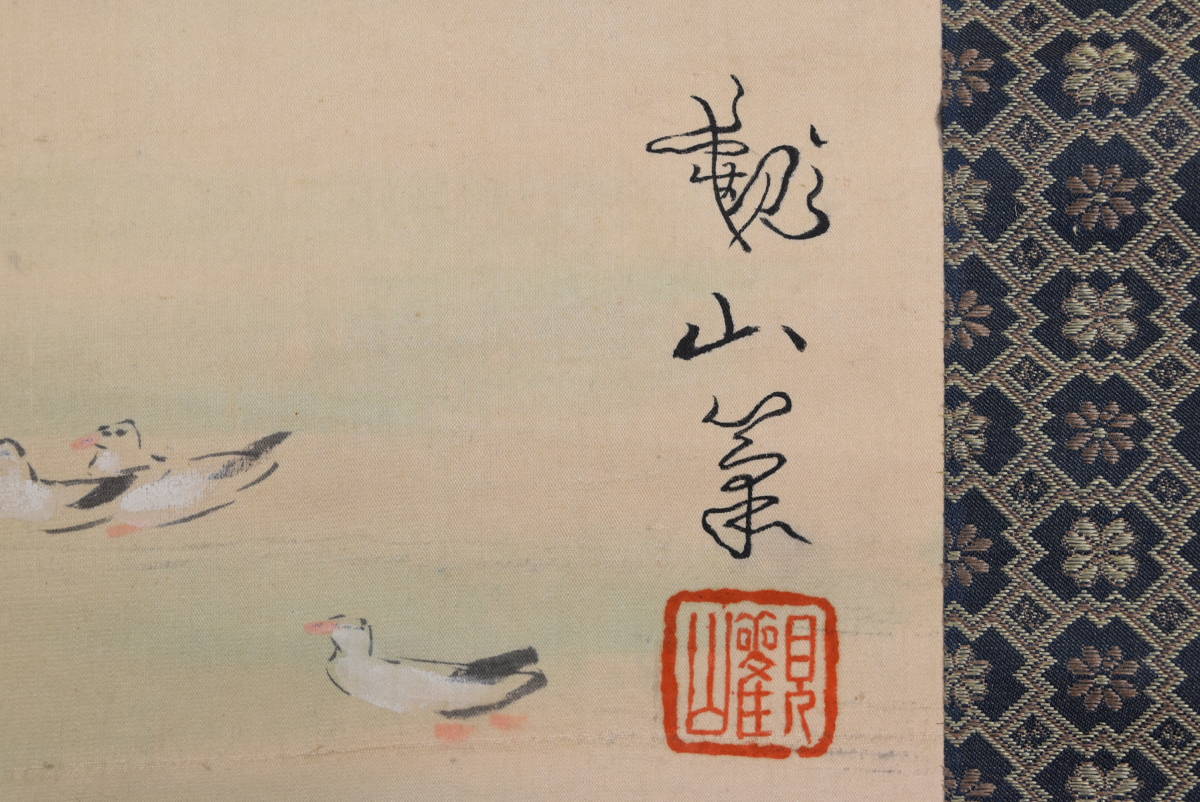 觀山筆
觀山